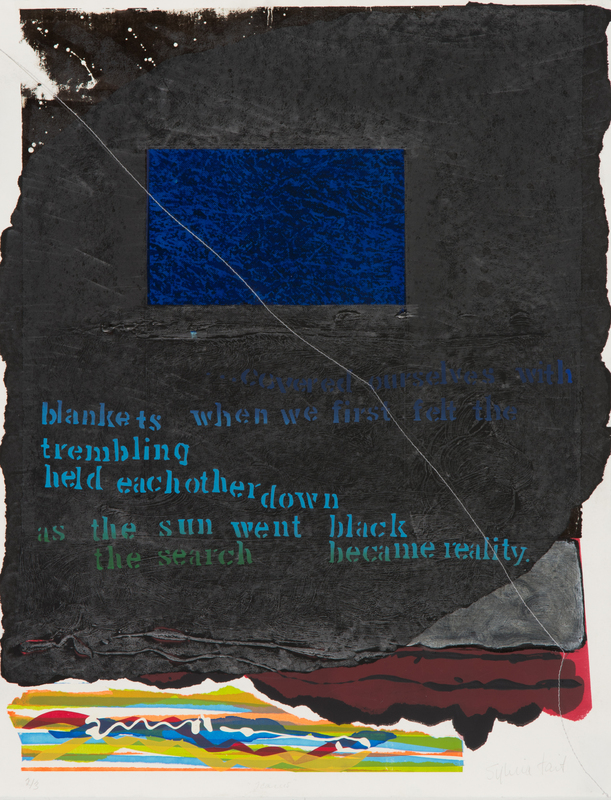 covered ourselves with
blankets when we first felt the
trembling
held eachother down
as the sun went black
the search became reality.
2/9